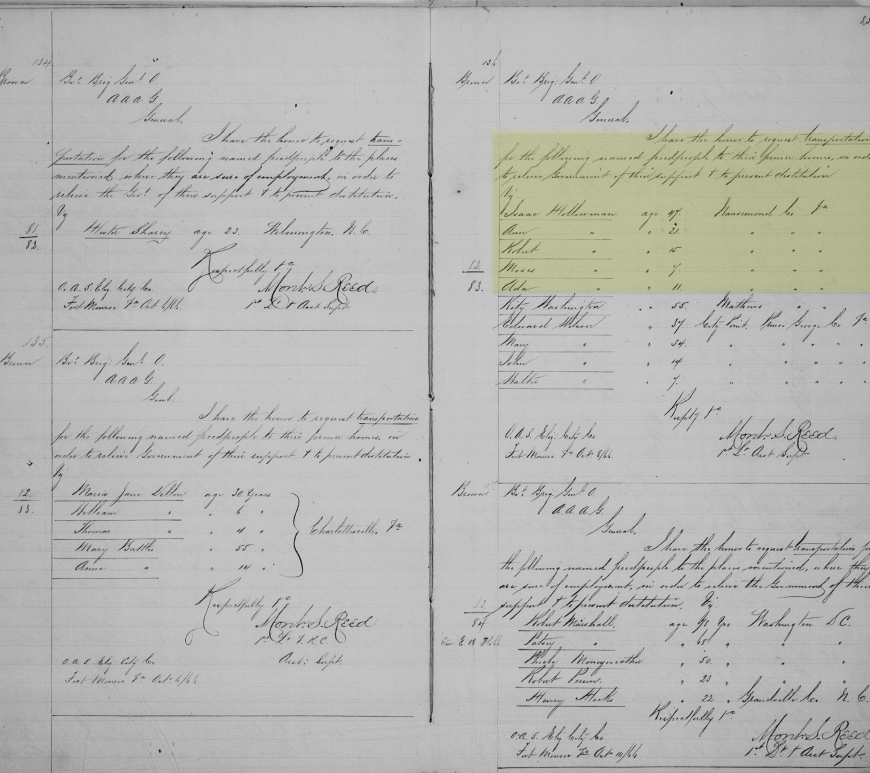 134
Brown
Bvt Brig Genl O.
A.A.A.G.
General.
I have the honor to request trans-
portation for the following named freedpeople to the places
mentioned, where they are sure of employment, in order to
relieve the Govt of their support & to prevent destitution.
Viz
81/82
Sharry age 23. Wilmington, N.C.
Respectfully &c
Monk S. Reed
O.A.S. Eliz City Co
Fort Monroe Va Oct 6/66
1st Lt & Asst Supt
135.
Brown
Bvt Brig Genl O.
A.A.A.G.
Genl.
I have the honor to request transportation
for the following named freedpeople to their former homes, in
order to relieve Government of their support & to prevent destitution.
Viz
82/83
Maria Jane Dillon age 30 Years
William " " 6 "
Thomas " " 4 "
Mary Battle " 55 "
Anna " " 14 "
Charlottesville Va
Respectfully &c
Monk S. Reed
O.A.S. Eliz City Co
Asst. Supt.
Fort Monroe Va Oct 6/66
136
Brown
Bvt Brig. Genl O
A.A.A.G.
General.
I have the honor to request transportation
for the following named freedpeople to their former homes, in order
to relieve Government of their support & to prevent destitution
Viz
Isaac Hollowman age 47. Nansemond Co Va
Ann " " 21. " " "
Robert " " 15 " " "
82/83.
Moses " " 7. " " "
Ada " " 11 " " "
Kitty Washington " 55. Mathews " "
Edward Wilson " 37. City Point. Prince George Co Va
Mary " " 34. " " " " "
John " " 14 " " " " "
" " 7. " " " " "
Respty &c
Monk S. Reed
O.A.S. Eliz. City Co
1st Lt Asst Supt
Fort Monroe Va Oct 8/66
Brown
Bvt Brig. Genl O
A.A.A.G.
General.
I have the honor to request transportation for
the following named freedpeople to the places mentioned, where they
are sure of employment, in order to relieve the Government of their
support & to prevent destitution. Viz
84
Robert Marshall. age Yrs Washington D.C.
" " "
" 50. " "
Robert " 23 " "
Henry " 22 " Granville Co. N.C.
Respectfully &c.
Monk S. Reed
O.A.S. Eliz City Co
Fort Monroe Va Oct 10/66
1st Lt & Asst Supt